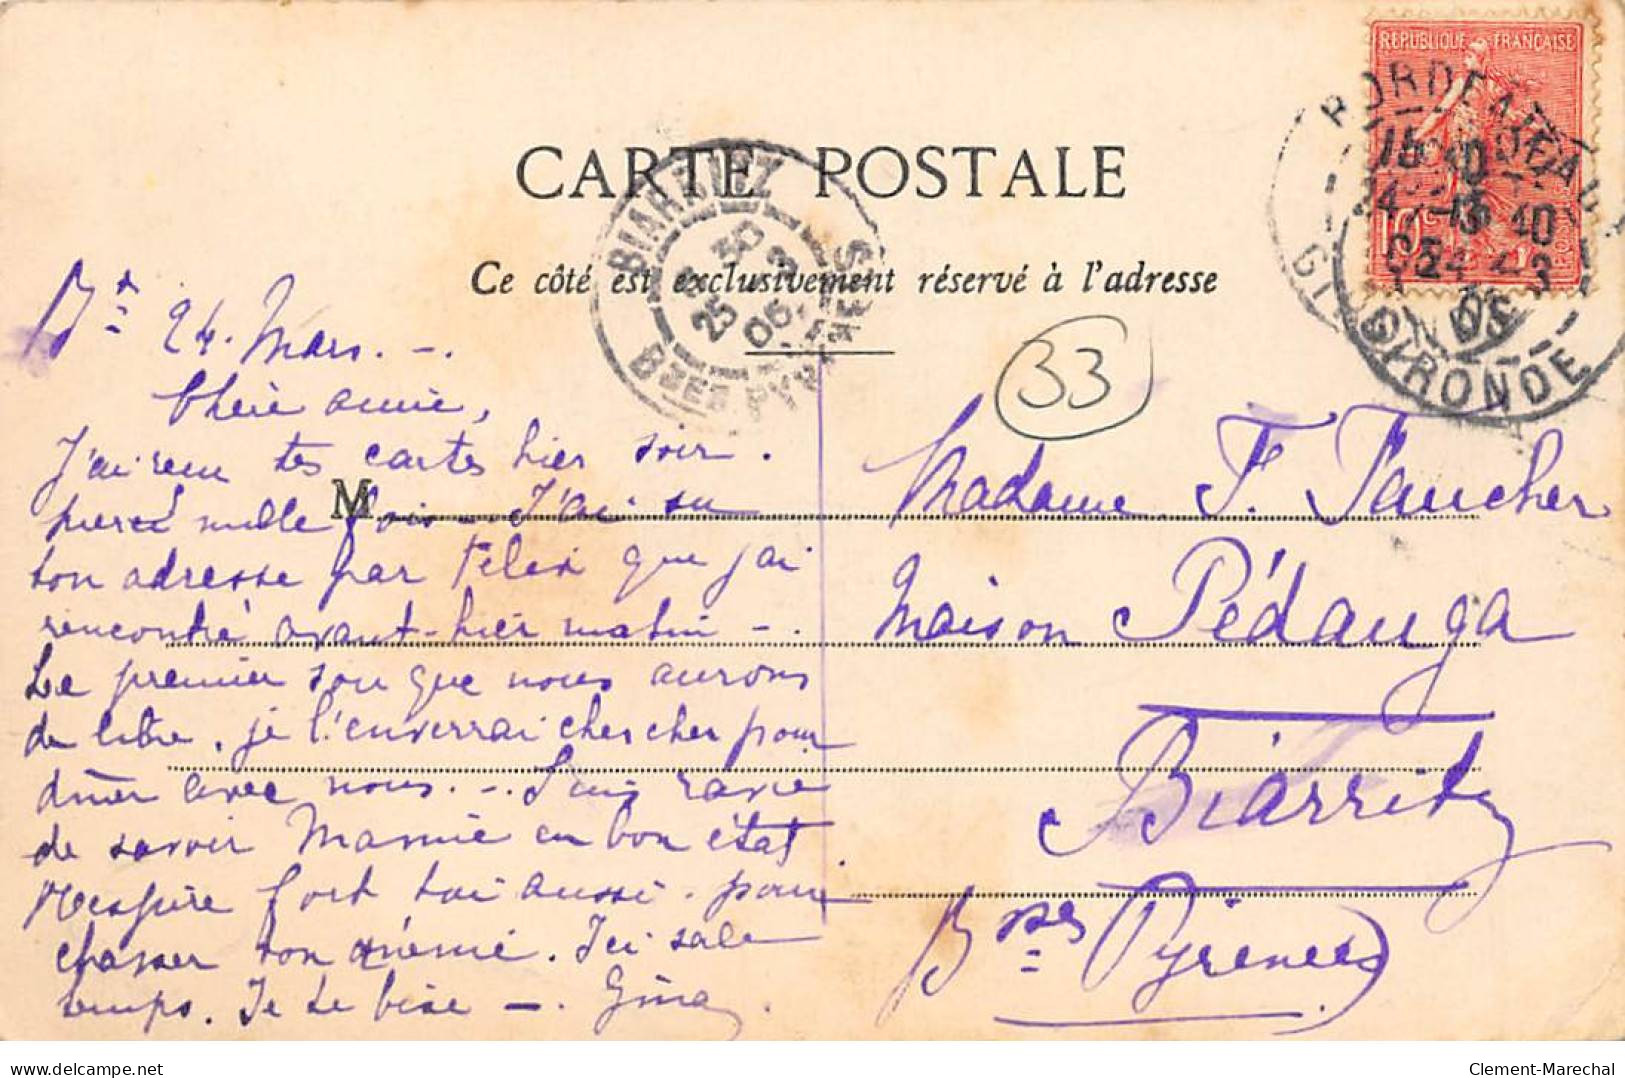 REPUBLIQUE FRANÇAISE
10c
BORDEAUX
GIRONDE
CARTE POSTALE
BIARRITZ
25 3 06
Bses PYRENEES
Ce côté est exclusivement réservé à l'adresse
33
Bx 24 Mars. -.
Chère amie,
J'ai reçu tes cartes hier soir.
merci mille fois - J'ai su
ton adresse par Félix que j'ai
rencontré avant-hier matin -.
Le premier soir que nous aurons
de libre, je l'enverrai chercher pour
dîner avec nous. -. Suis ravie
de savoir Mamie en bon état.
Respire fort toi aussi. pour
chasser ton anémie. Ici sale
temps. Je te bise -. Gina.
M
Madame F. Faucher
Maison Pédauga
Biarritz
Bsses Pyrénées
delcampe.net
Clement-Marechal